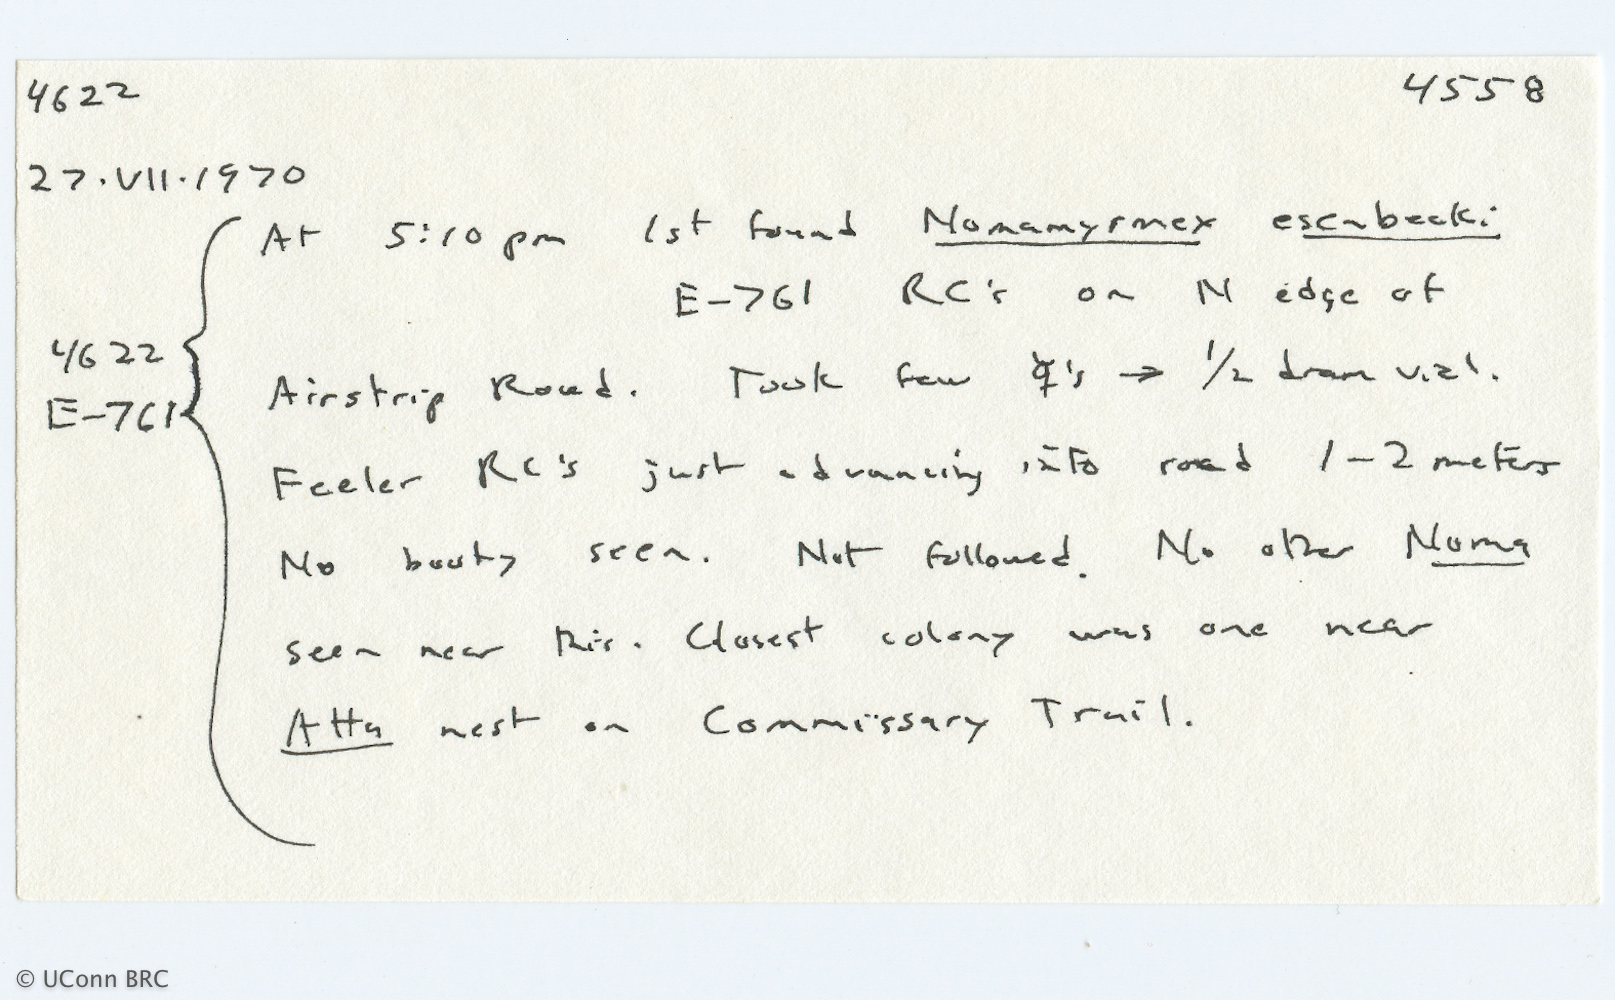 4622 4558
27.VII.1970
At 5:10 pm 1st found Nomamyrmex esenbecki
E-761 RC's on N edge of
4622
Airstrip Road. Took few ☿'s → 1/2 dram vial.
E-761
Feeler RC's just advancing into road 1-2 meters
No booty seen. Not followed. No other Noma
seen near this. Closest colony was one near
Atta nest on Commissary Trail.
© UConn BRC